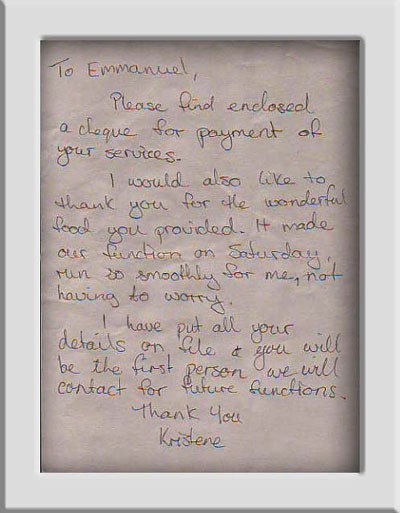 To Emmanuel,
Please find enclosed
a cheque for payment of
your services.
I would also like to
thank you for the wonderful
food you provided. It made
our function on Saturday,
run so smoothly for me, not
having to worry.
I have put all your
details on file & you will
be the first person we will
contact for future functions.
Thank You
Kristene